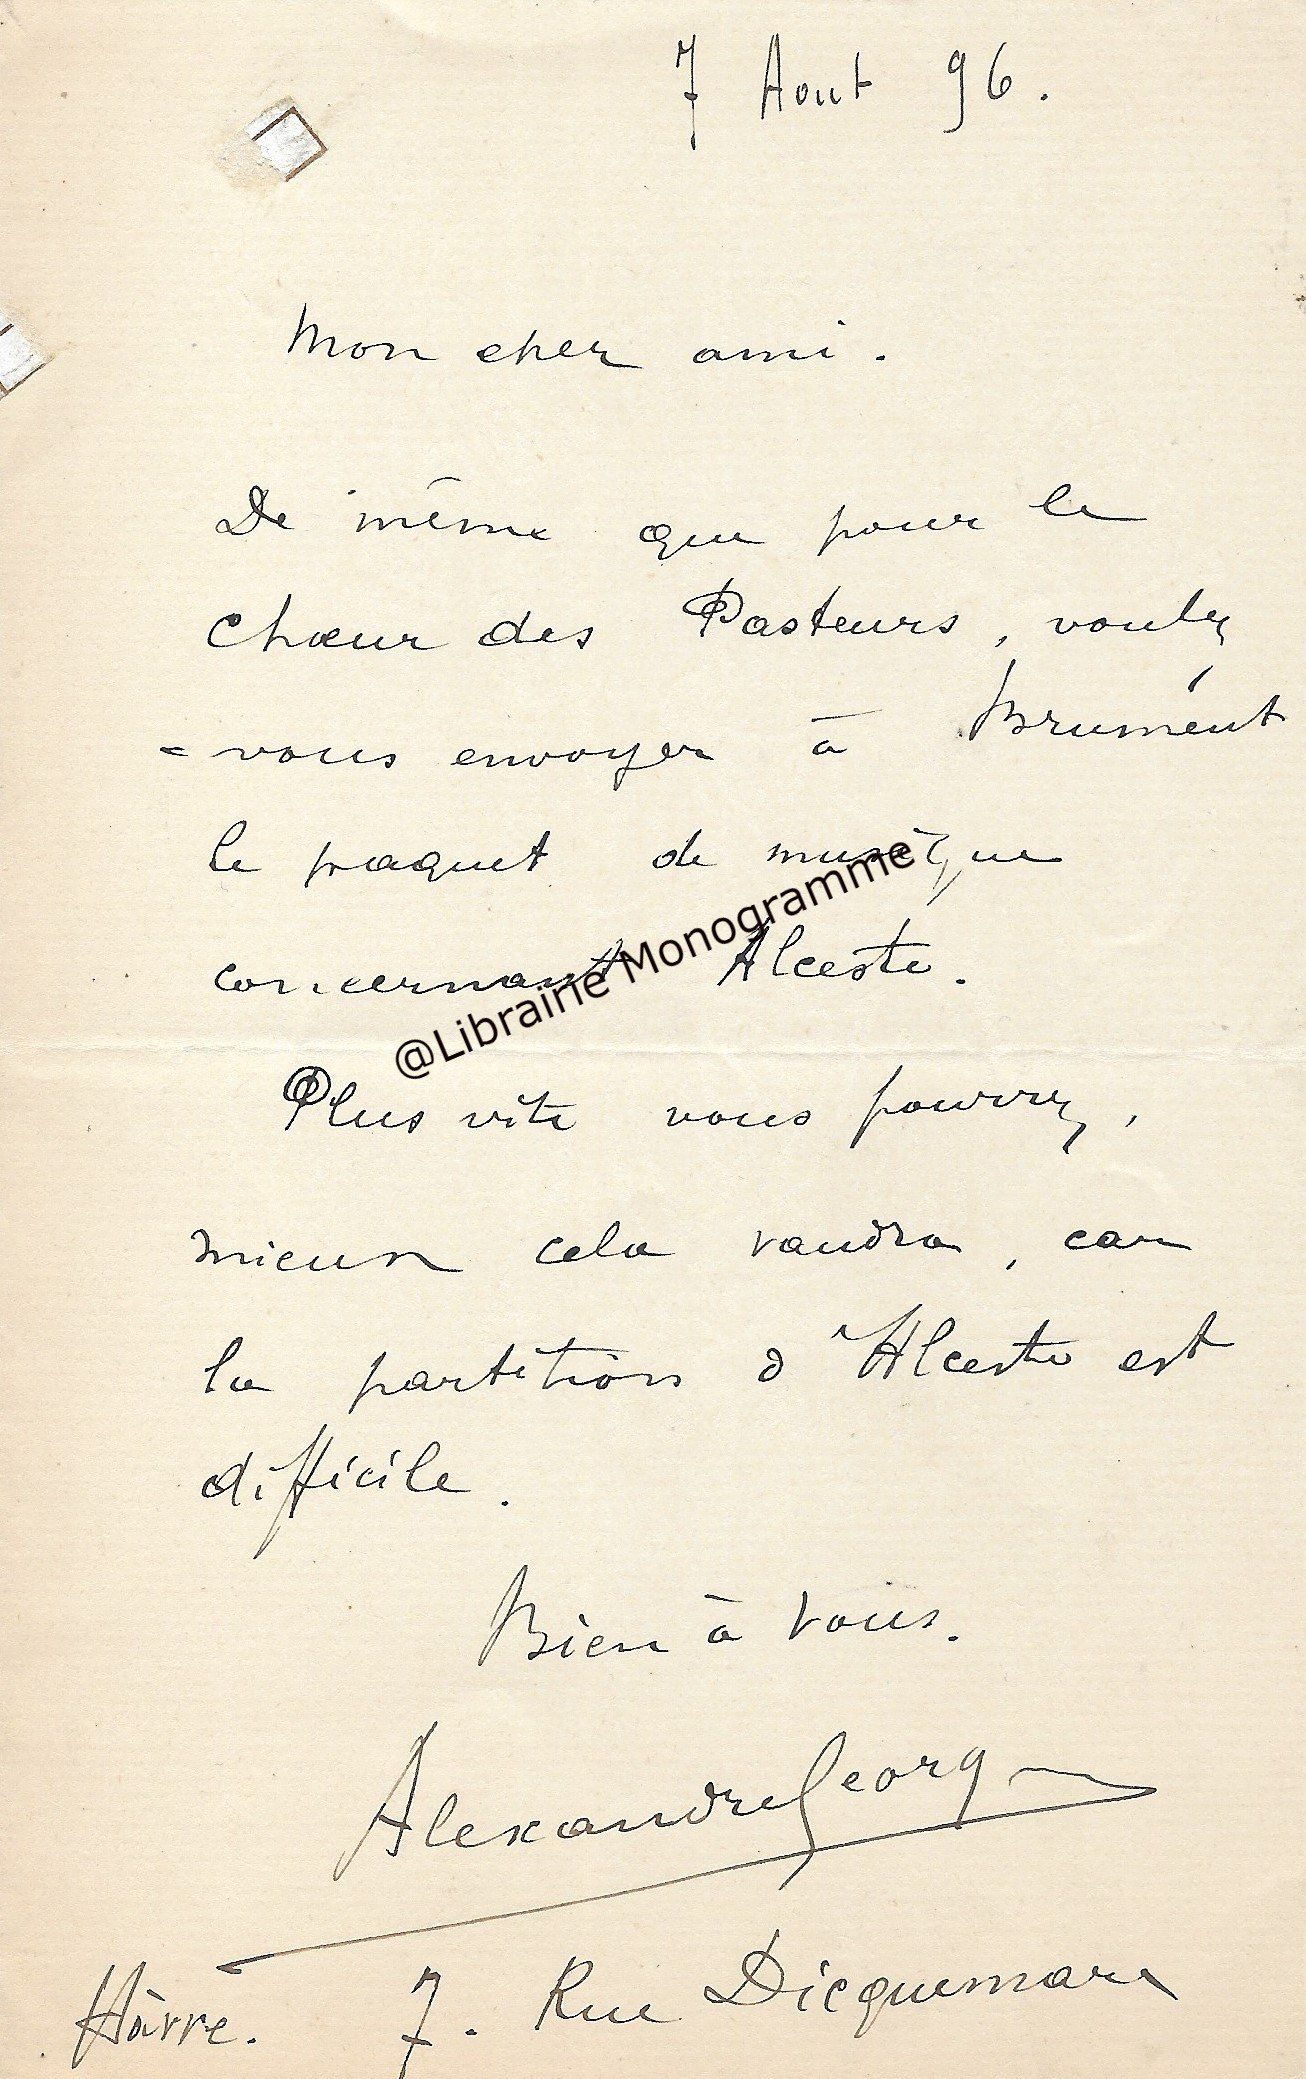 7 Aout 96.
Mon cher ami.
De même que pour le
Chœur des Pasteurs, voulez
=vous envoyer à Brument
le paquet de musique
concernant Alceste.
@Librairie Monogramme
Plus vite vous pourrez,
mieux cela vaudra, car
la partition d'Alceste est
difficile.
Bien à vous.
Alexandre Georg
Hâvre. 7. Rue Dicquemare